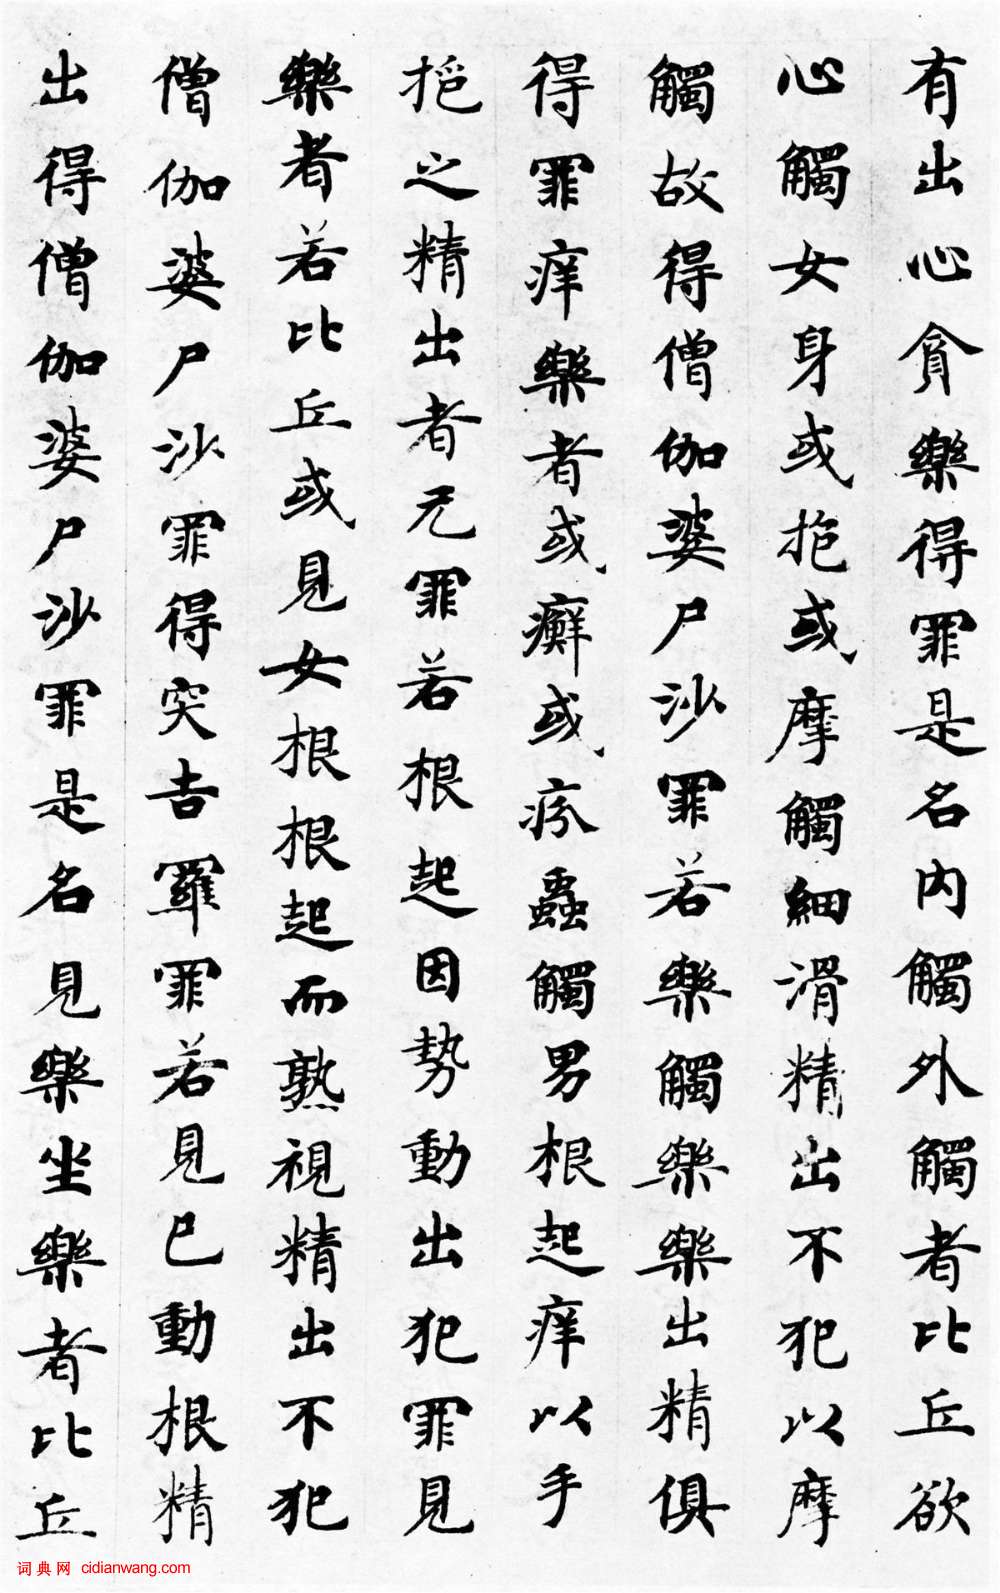 有出心貪樂得罪是名內觸外觸者比丘欲
心觸女身或抱或摩觸細滑精出不犯以摩
觸故得僧伽婆尸沙罪若樂觸樂樂出精俱
得罪痒樂者或癬或疥蟲觸男根起痒以手
抱之精出者无罪若根起因勢動出犯罪見
樂者若比丘或見女根根起而熟視精出不犯
僧伽婆尸沙罪得突吉羅罪若見已動根精
出得僧伽婆尸沙罪是名見樂坐樂者比丘
词典网 cidianwang.com